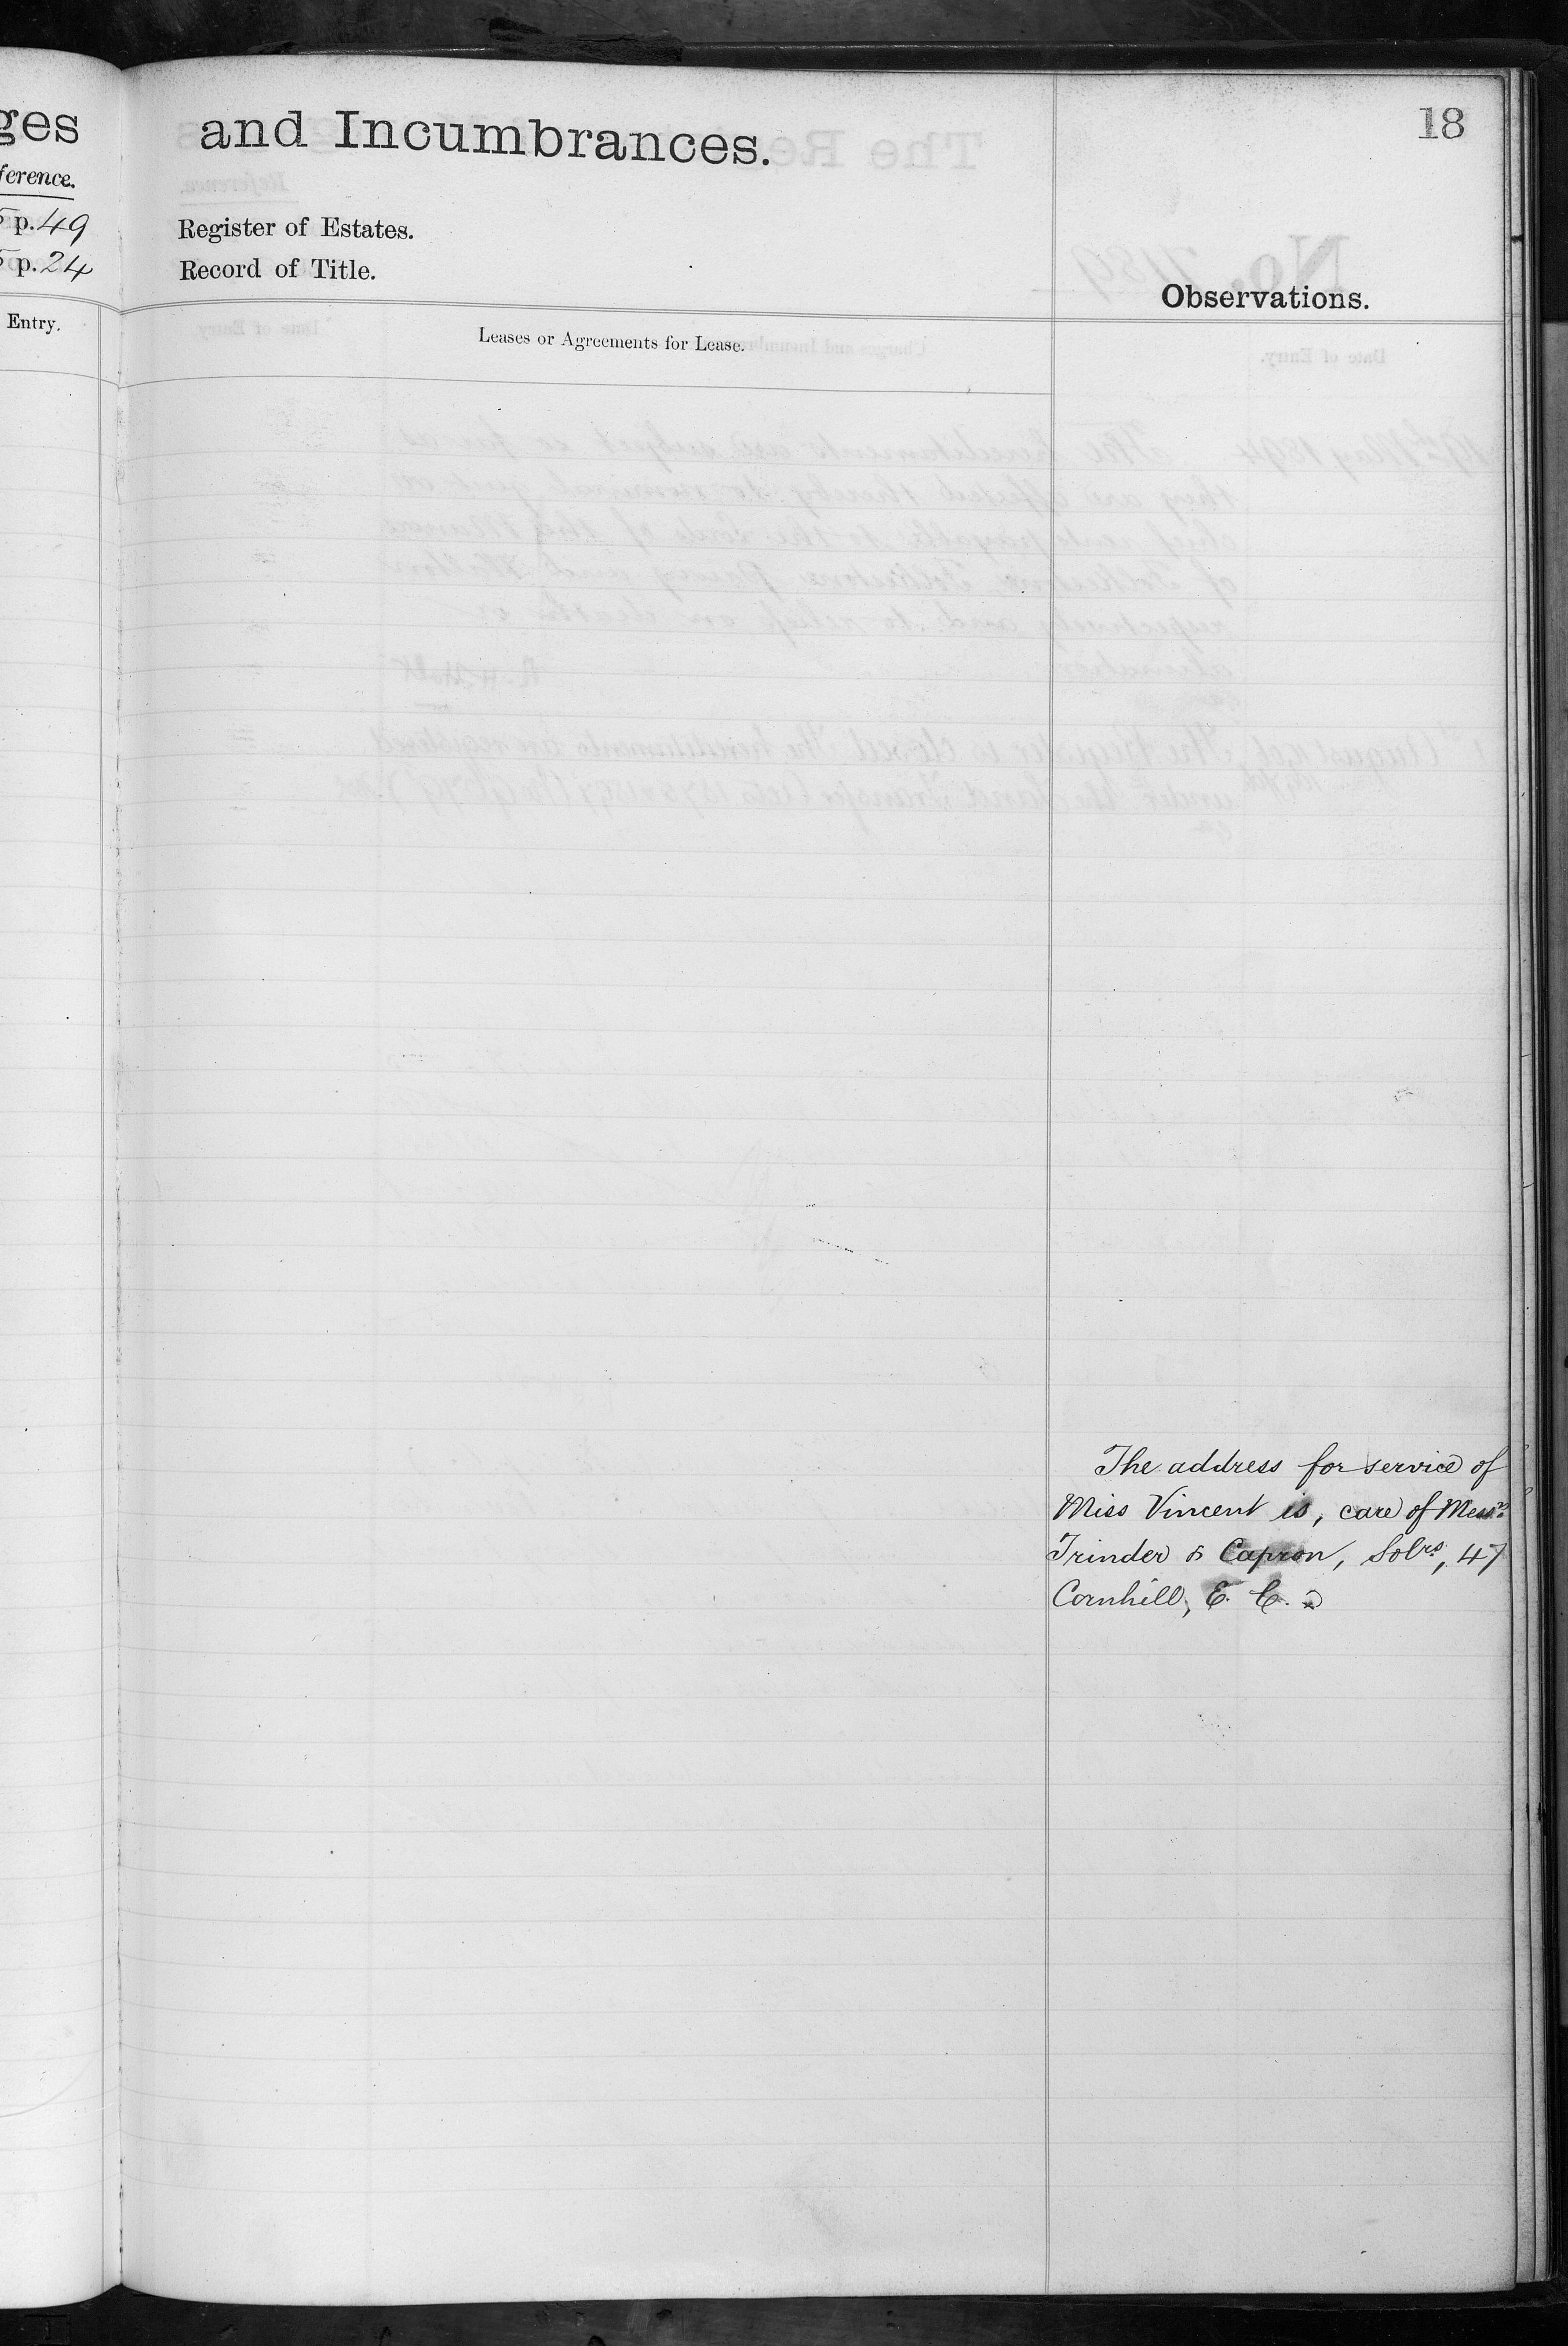 ges
ference.
p. 49
p. 24
Entry.
and Incumbrances.
18
Register of Estates.
Record of Title.
Observations.
Leases or Agreements for Lease.
The address for service of
Miss Vincent is, care of Messrs
Trinder & Capron, Solrs, 47
Cornhill, E. C.